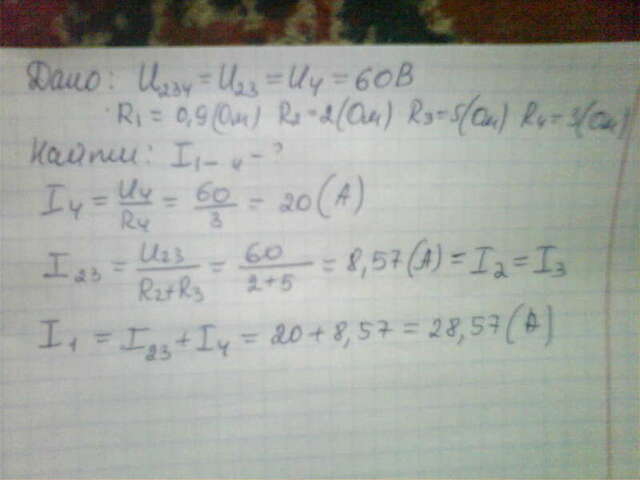 Дано: U234 = U23 = U4 = 60В
R1 = 0,9(Ом) R2 = 2(Ом) R3 = 5(Ом) R4 = 3(Ом)
Найти: I1-4 - ?
I4 = U4/R4 = 60/3 = 20(А)
I23 = U23/R2+R3 = 60/2+5 = 8,57(А) = I2 = I3
I1 = I23 + I4 = 20 + 8,57 = 28,57(А)